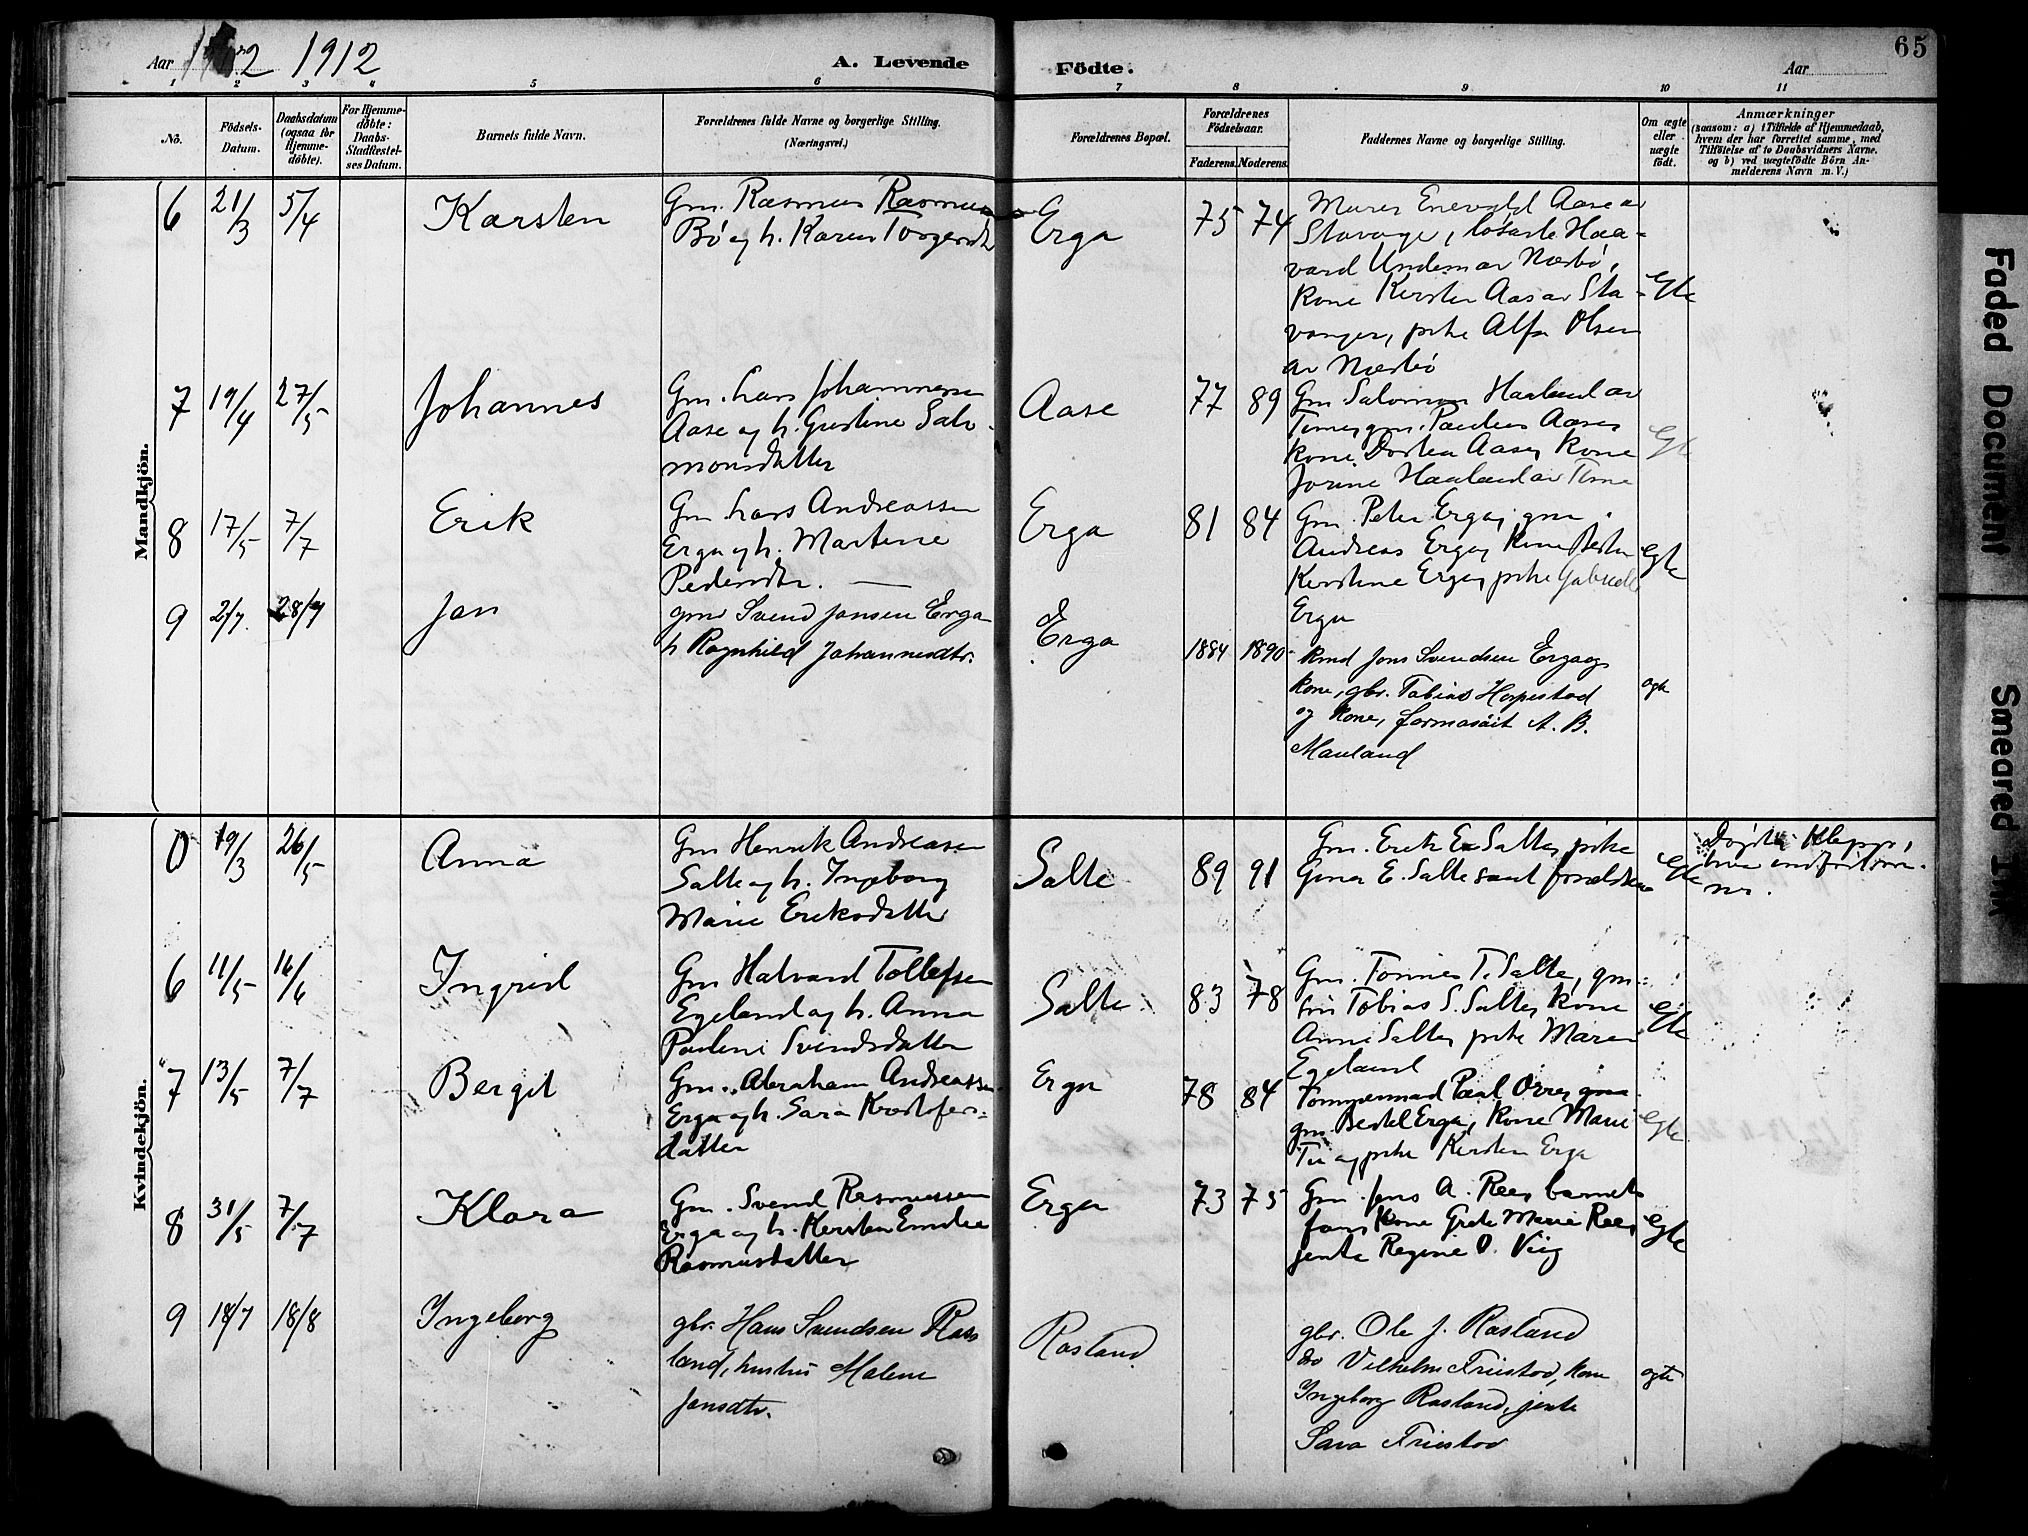 65
Aar 1912 1912
A. Levende Födte.
Aar
1 2 3 4 5 6 7 8 9 10 11
No.
Födsels-Datum.
Daabsdatum (ogsaa for Hjemme-döbte).
For Hjemme-döbte: Daabs-Stadfæstel-ses Datum.
Barnets fulde Navn.
Forældrenes fulde Navne og borgerlige Stilling. (Næringsvei.)
Forældrenes Bopæl.
Forældrenes Födselsaar.
Faderens. Moderens.
Faddernes Navne og borgerlige Stilling.
Om ægte eller uægte födt.
Anmærkninger
(saasom: a) i Tilfælde af Hjemmedaab, hvem der har forrettet samme, med Tilföielse af to Daabsvidners Navne. og b) ved uægtefödte Börn Anmelderens Navn m. V.)
Mandkjön.
6 21/3 5/4 Karsten
Gm. Rasmus Rasmussen
Bö og h. Karen Torgersdtr
Erga 75 74
Murer Enevald Aase av
Stavager, løsarb. Haa-
vard Undem av Nærbö,
kone Kersten Aas av Sta-
vanger, pike Alfa Olsen
av Nærbö
Egte
7 19/4 27/5 Johannes
Gm. Lars Johannesen
Aase og h. Gustine Salo-
monsdatter
Aase 77 89
Gm Salomon Haaland av
Time, gm. Paulus Aase,
kone Dortea Aase, kone
Jorine Haaland av Time
Egte
8 17/5 7/7 Erik
Gm Lars Andreassen
Erga og h. Martine
Pedersdtr.
Erga 81 84
Gm. Peter Erga, gm.
Andreas Erga, kone
Kerstine Erga, pike Gabriele
Erga
Egte
9 2/7. 28/7 Jan
gm Svend Jansen Erga
h Ragnhild Johannesdtr.
Erga 1884 1890
Kmd Jons Svendsen Erga og
kone, gbr. Tobias Horpestad
og kone, formasöit A. B.
Mauland
ægte
Kvindekjön.
0 19/3 26/5 Anna
Gm Henrik Andreasen
Salte og h. Ingeborg
Marie Eriksdatter
Salte 89 91
Gm. Erik E Salte, pike
Gina E. Salte samt forældrene
Egte
Döpt i Klepp,
6 11/5 16/6 Ingrid
Gm Halvard Tollefsen
Egeland og h. Anna
Pauline Svendsdatter
Salte 83 78
Gm. Tönnes T. Salte, gm-
sön Tobias S. Salte, kone
Anne Salte, pike Maren
Egeland
Egte
7 13/5 7/7 Bergit
Gm. Abraham Andreassen
Erga og h. Sara Kristofers-
datter
Erga 78 84
Tömmermand Paul Orre,
gm Bertel Erga, kone Marie
Tu og pike Kirsten Erga
Egte
8 31/5 7/7 Klara
Gm. Svend Rasmussen
Erga og h. Kersten Emilie
Rasmusdatter
Erga 73 75
Gm. Jens A. Ree, barnets
far, kone Grete Marie Ree,
jente Regine O. Vig
Egte
9 18/7 18/8 Ingeborg
gbr. Hans Svendsen Ras
land, hustru Malene
Jansdtr.
Rasland
gbr. Ole J. Rasland
do Vilhelm Friestad, kone
Ingeborg Rasland, jente
Sara Friestad
ægte
Faded Document
Smeared Ink